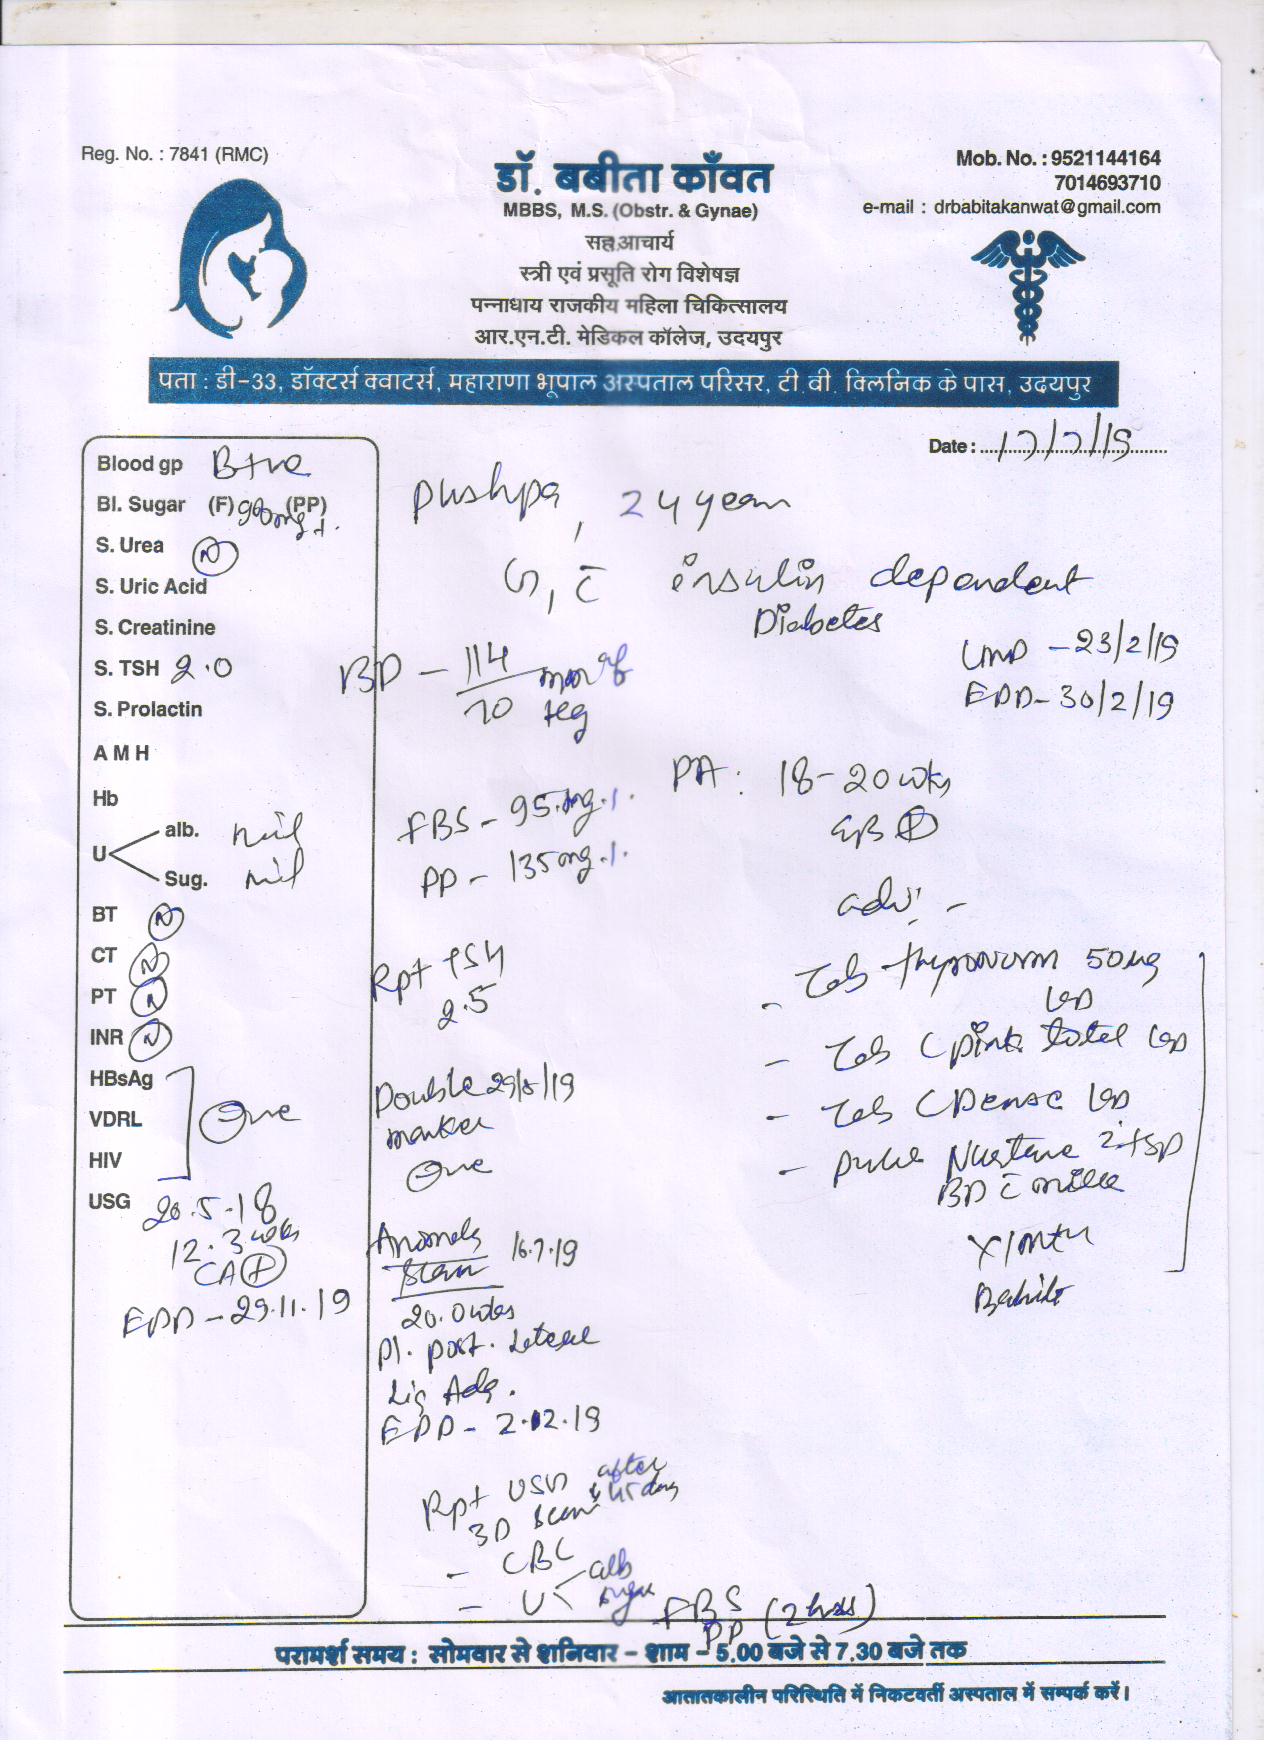 Reg. No. : 7841 (RMC)
Mob. No. : 9521144164
7014693710
e-mail : drbabitakanwat@gmail.com
डॉ. बबीता काँवत
MBBS, M.S. (Obstr. & Gynae)
सह आचार्य
स्त्री एवं प्रसूति रोग विशेषज्ञ
पन्नाधाय राजकीय महिला चिकित्सालय
आर.एन.टी. मेडिकल कॉलेज, उदयपुर
पता : डी-33, डॉक्टर्स क्वाटर्स, महाराणा भूपाल अस्पताल परिसर, टी.वी. क्लिनिक के पास, उदयपुर
Date : 17/7/19
Blood gp B+ve
Bl. Sugar (F) (PP)
S. Urea N
S. Uric Acid
S. Creatinine
S. TSH 2.0
S. Prolactin
A M H
Hb
U alb. nil
Sug. nil
BT N
CT N
PT N
INR N
HBsAg
VDRL
HIV
USG 20.5.18
12.3 wks
CA +
EDD - 29.11.19
Pushpa, 24 year
G, c̄ insulin dependent
Diabetes
LMP - 23/2/19
EDD - 30/2/19
BP - 114/70 mm of
Hg
PA : 18-20 wks
FBS - 95 mg.%
PP - 135 mg.%
adv: -
Rpt TSH
2.5
- Tab Thyronorm 50ug
OD
- Tab Cpink total OD
- Tab CDense OD
- Nurture 2 tsp
BD c̄ milk
X 1 Mth
Babita
Double 29/5/19
marker
-ve
Anomaly
Scan 16.7.19
20.0 wks
Pl. post. lateral
Liq Adq.
EDD - 2.12.19
Rpt USG after
3D Scan 45 days
- CBC
- U alb
sugar
FBS
PP (2 hrs)
परामर्श समय : सोमवार से शनिवार - शाम - 5.00 बजे से 7.30 बजे तक
आतातकालीन परिस्थिति में निकटवर्ती अस्पताल में सम्पर्क करें।